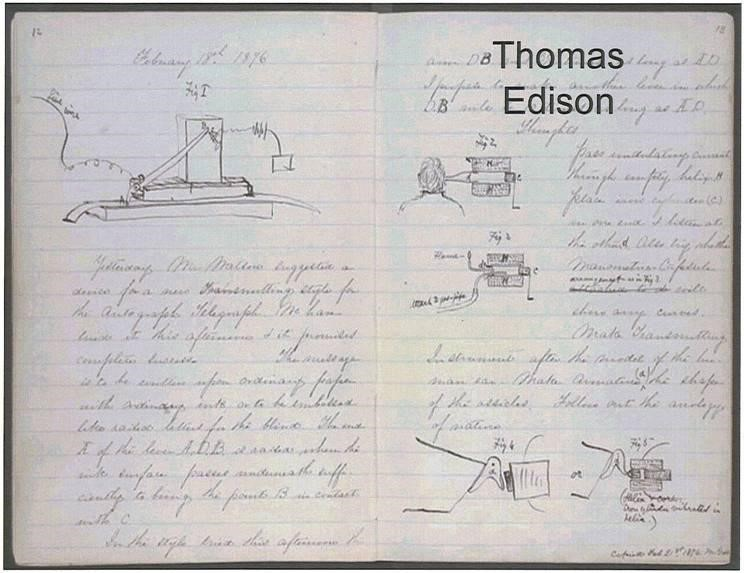 12
February 18th 1876
Fig 1
line wire
Yesterday Mr. Watson suggested a
device for a new Transmitting style for
the Autograph Telegraph. We have
tried it this afternoon & it promises
complete success. The message
is to be written upon ordinary paper
with ordinary ink or to be embossed
like raised letters for the blind. The end
A of the lever A.D.B. is raised when the
ink surface passes underneath suffi-
ciently to bring the point B in contact
with C.
In the style tried this afternoon the
13
arm DB as long as A.D.
I propose to make another lever in which
D.B as long as A.D.
Thomas
Edison
Thoughts
Fig. 2
H
C
Pass undulating current
through empty helix. H
place iron cylinder (C)
in one end & listen at
the other. Also try whether
Manometric Capsule
arranged as in fig 3
will
show any curves.
Fig 3
Flame
H
C
gas-pipe
Make Transmitting
Instrument after the model of the hu-
man ear. Make Armature (a) the shape
of the ossicles. Follow out the analogy
of nature.
Fig 4
a
or
Fig 5
a
(Helix & core.
Iron cylinder vibrated in
helix.)
Copied Feb 21st 1876.